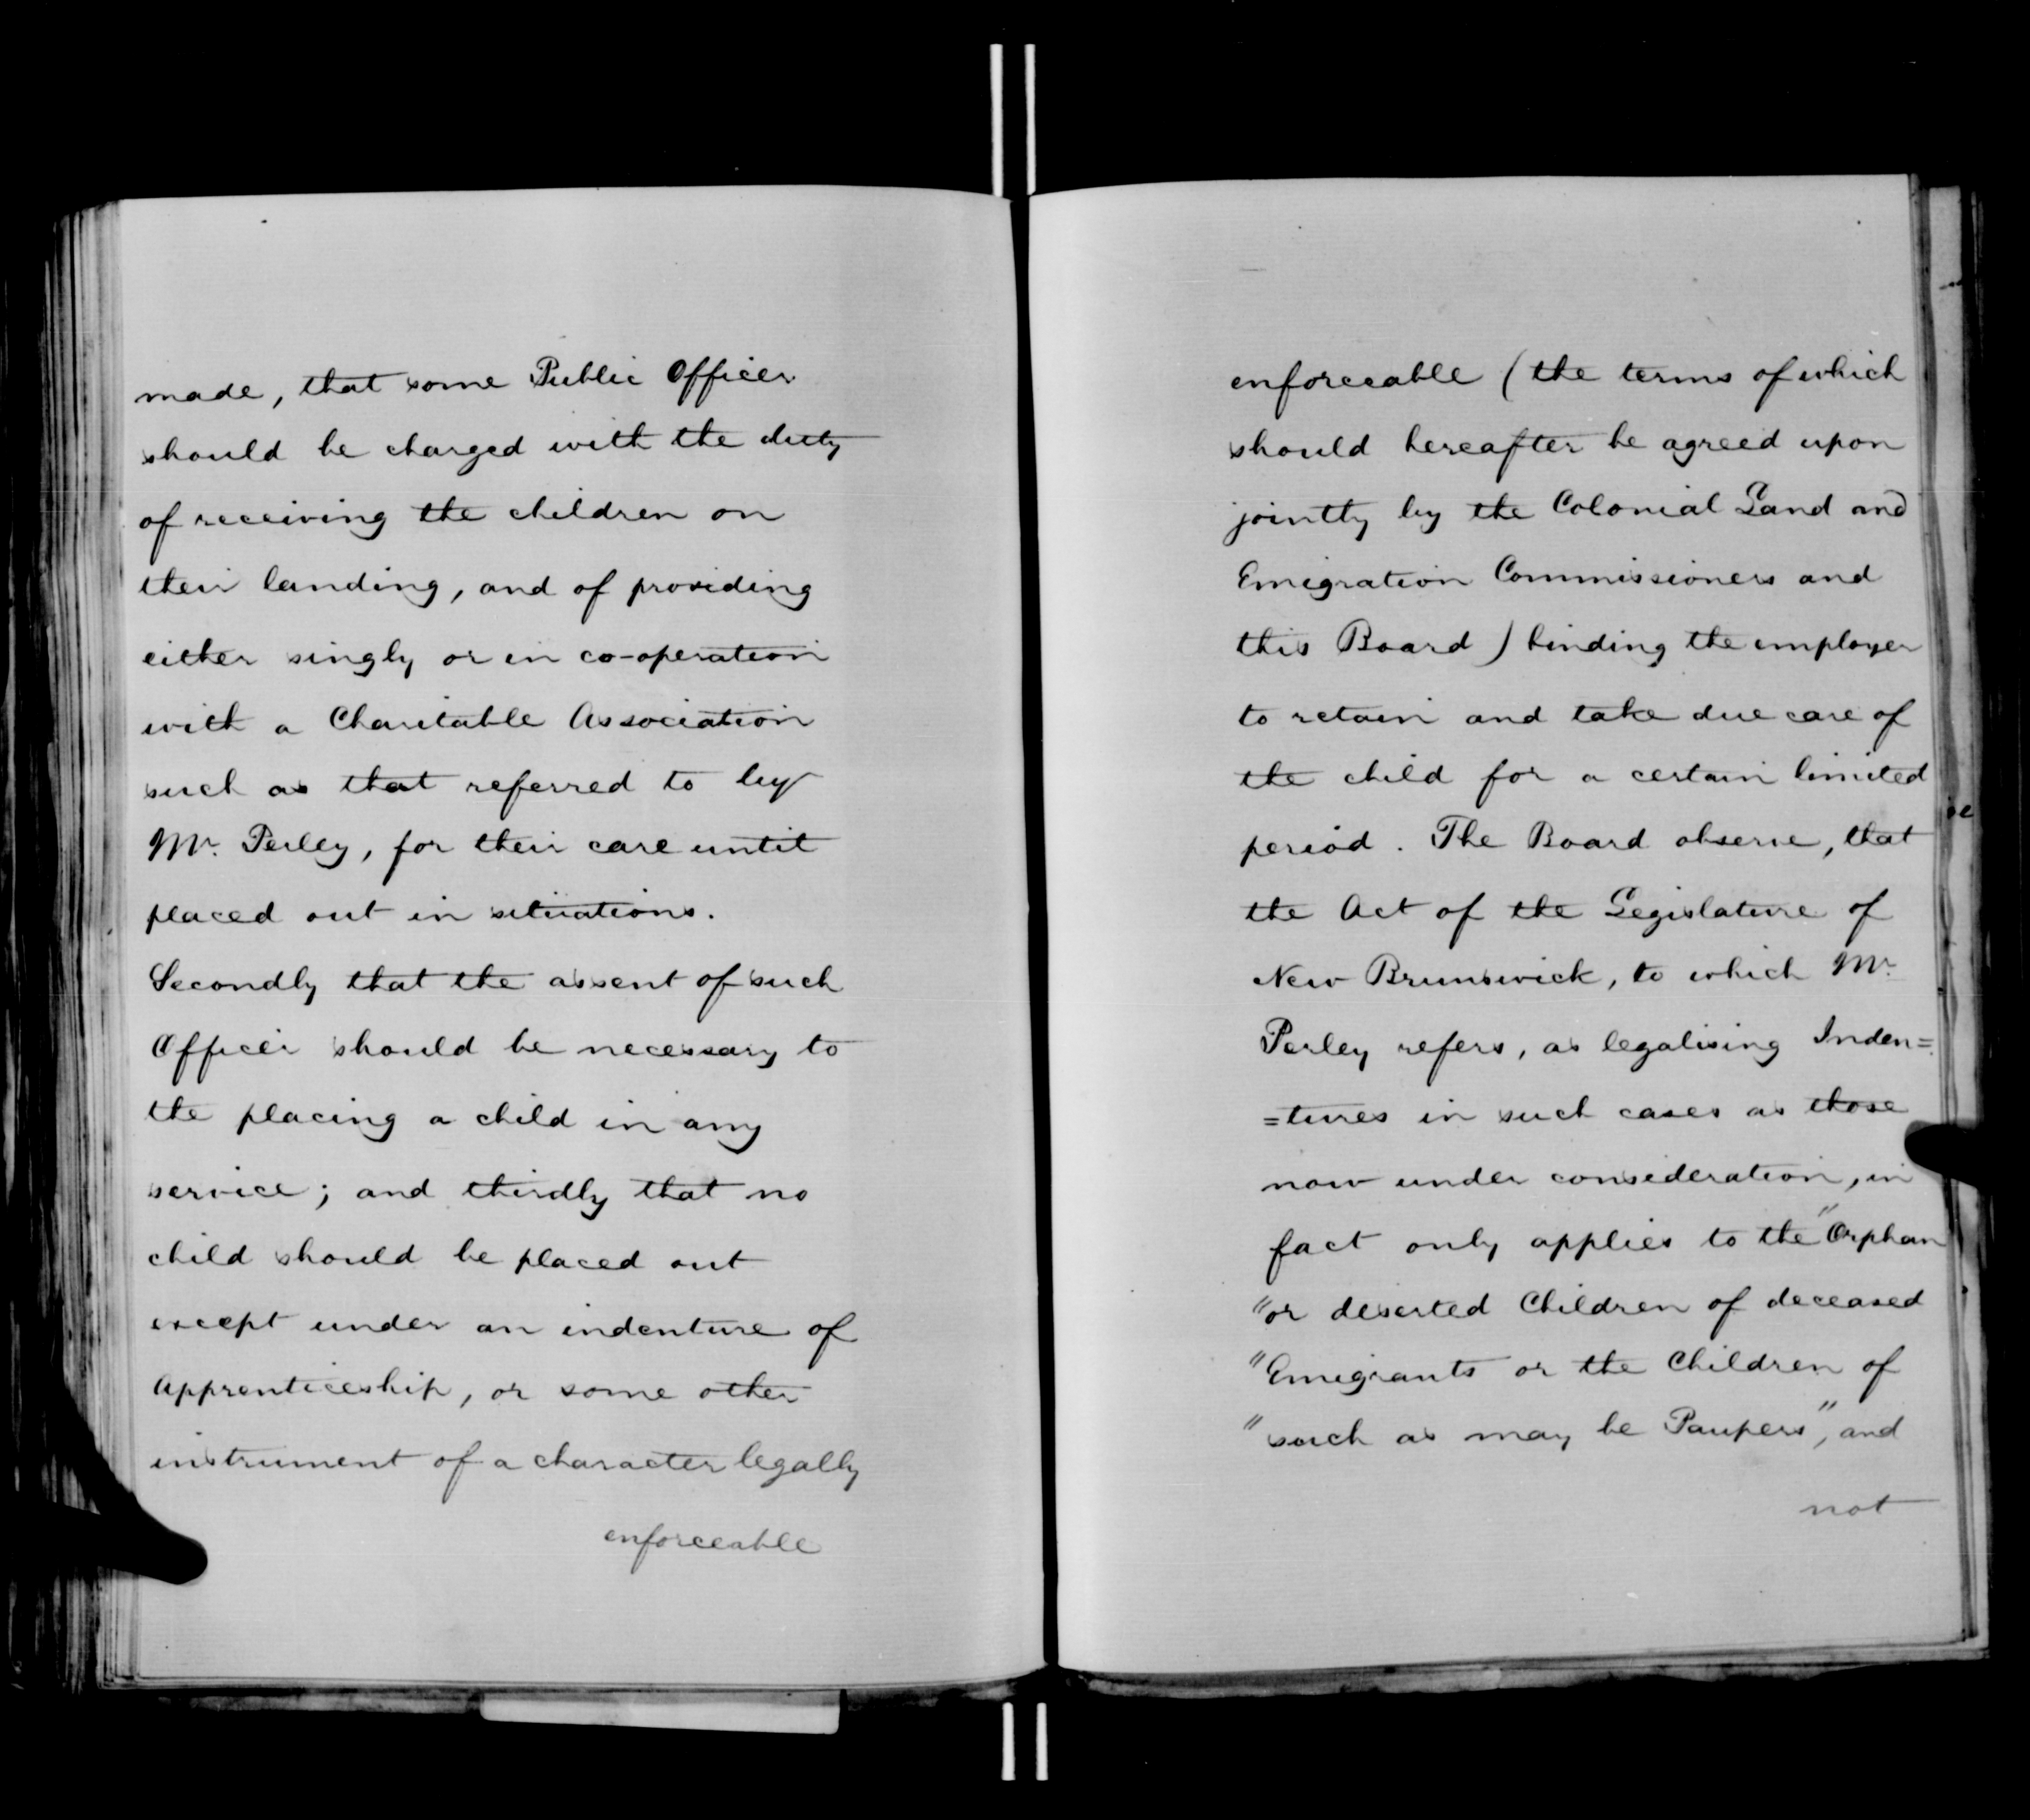 made, that some Public Officer
should be charged with the duty
of receiving the children on
their landing, and of providing
either singly or in co-operation
with a Charitable Association
such as that referred to by
Mr. Perley, for their care until
placed out in situations.
Secondly that the assent of such
Officer should be necessary to
the placing a child in any
service; and thirdly that no
child should be placed out
except under an indenture of
Apprenticeship, or some other
instrument of a character legally
enforceable
enforceable (the terms of which
should hereafter be agreed upon
jointly by the Colonial Land and
Emigration Commissioners and
this Board) binding the employer
to retain and take due care of
the child for a certain limited
period. The Board observe, that
the Act of the Legislature of
New Brunswick, to which Mr.
Perley refers, as legalising Inden=
=tures in such cases as those
now under consideration, in
fact only applies to the "Orphan
"or deserted Children of deceased
"Emigrants or the Children of
"such as may be Paupers", and
not